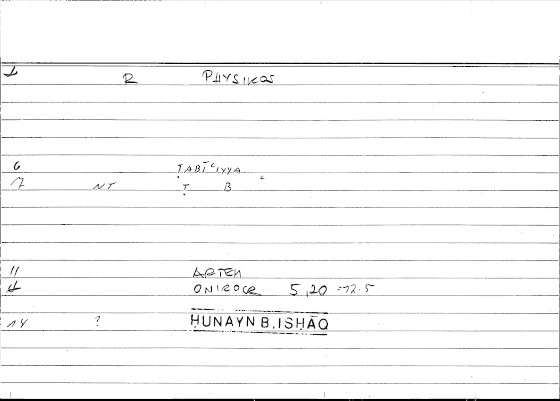 1 R PHYSIKOS
6 ṬABĪʿIYYA
7 NT Ṭ B ʿ
11 ARTEM
ONIROCR 5,20 =72.5
14 ? HUNAYN B. ISHĀQ